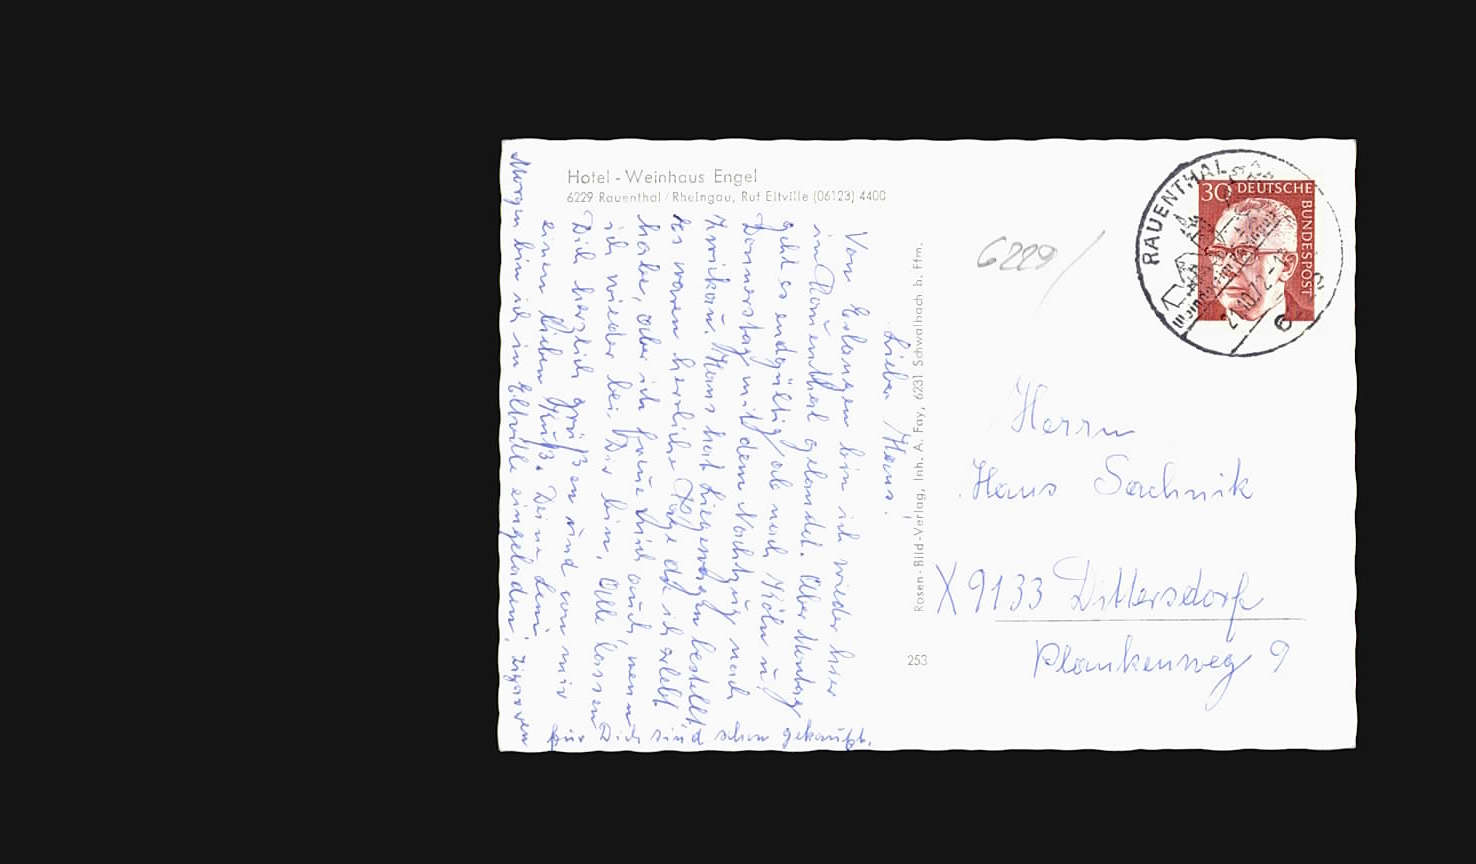 Hotel - Weinhaus Engel
6229 Rauenthal / Rheingau, Ruf Eltville (06123) 4400
Lieber Hans!
Von Erlangen bin ich wieder hier
in Rauenthal gelandet. Aber Montag
geht es endgültig ab nach Köln u.
Donnerstag mit dem Nachtzug nach
Zwickau. Hans hat Liegewagen bestellt.
Es waren herrliche Tage die ich erlebt
habe, aber ich freue mich auch, wenn
ich wieder bei Dir bin. Alle lassen
Dich herzlich grüßen und von mir
einen lieben Kuß. Deine
Morgen bin ich in Eltville eingeladen. Zigarren
für Dich sind schon gekauft.
Rosen-Bild-Verlag, Inh. A. Fay, 6231 Schwalbach b. Ffm.
253
6229
RAUENTHAL
30 DEUTSCHE
BUNDESPOST
Herrn
Hans Sachnik
X 9133 Dittersdorf
Plankenweg 9